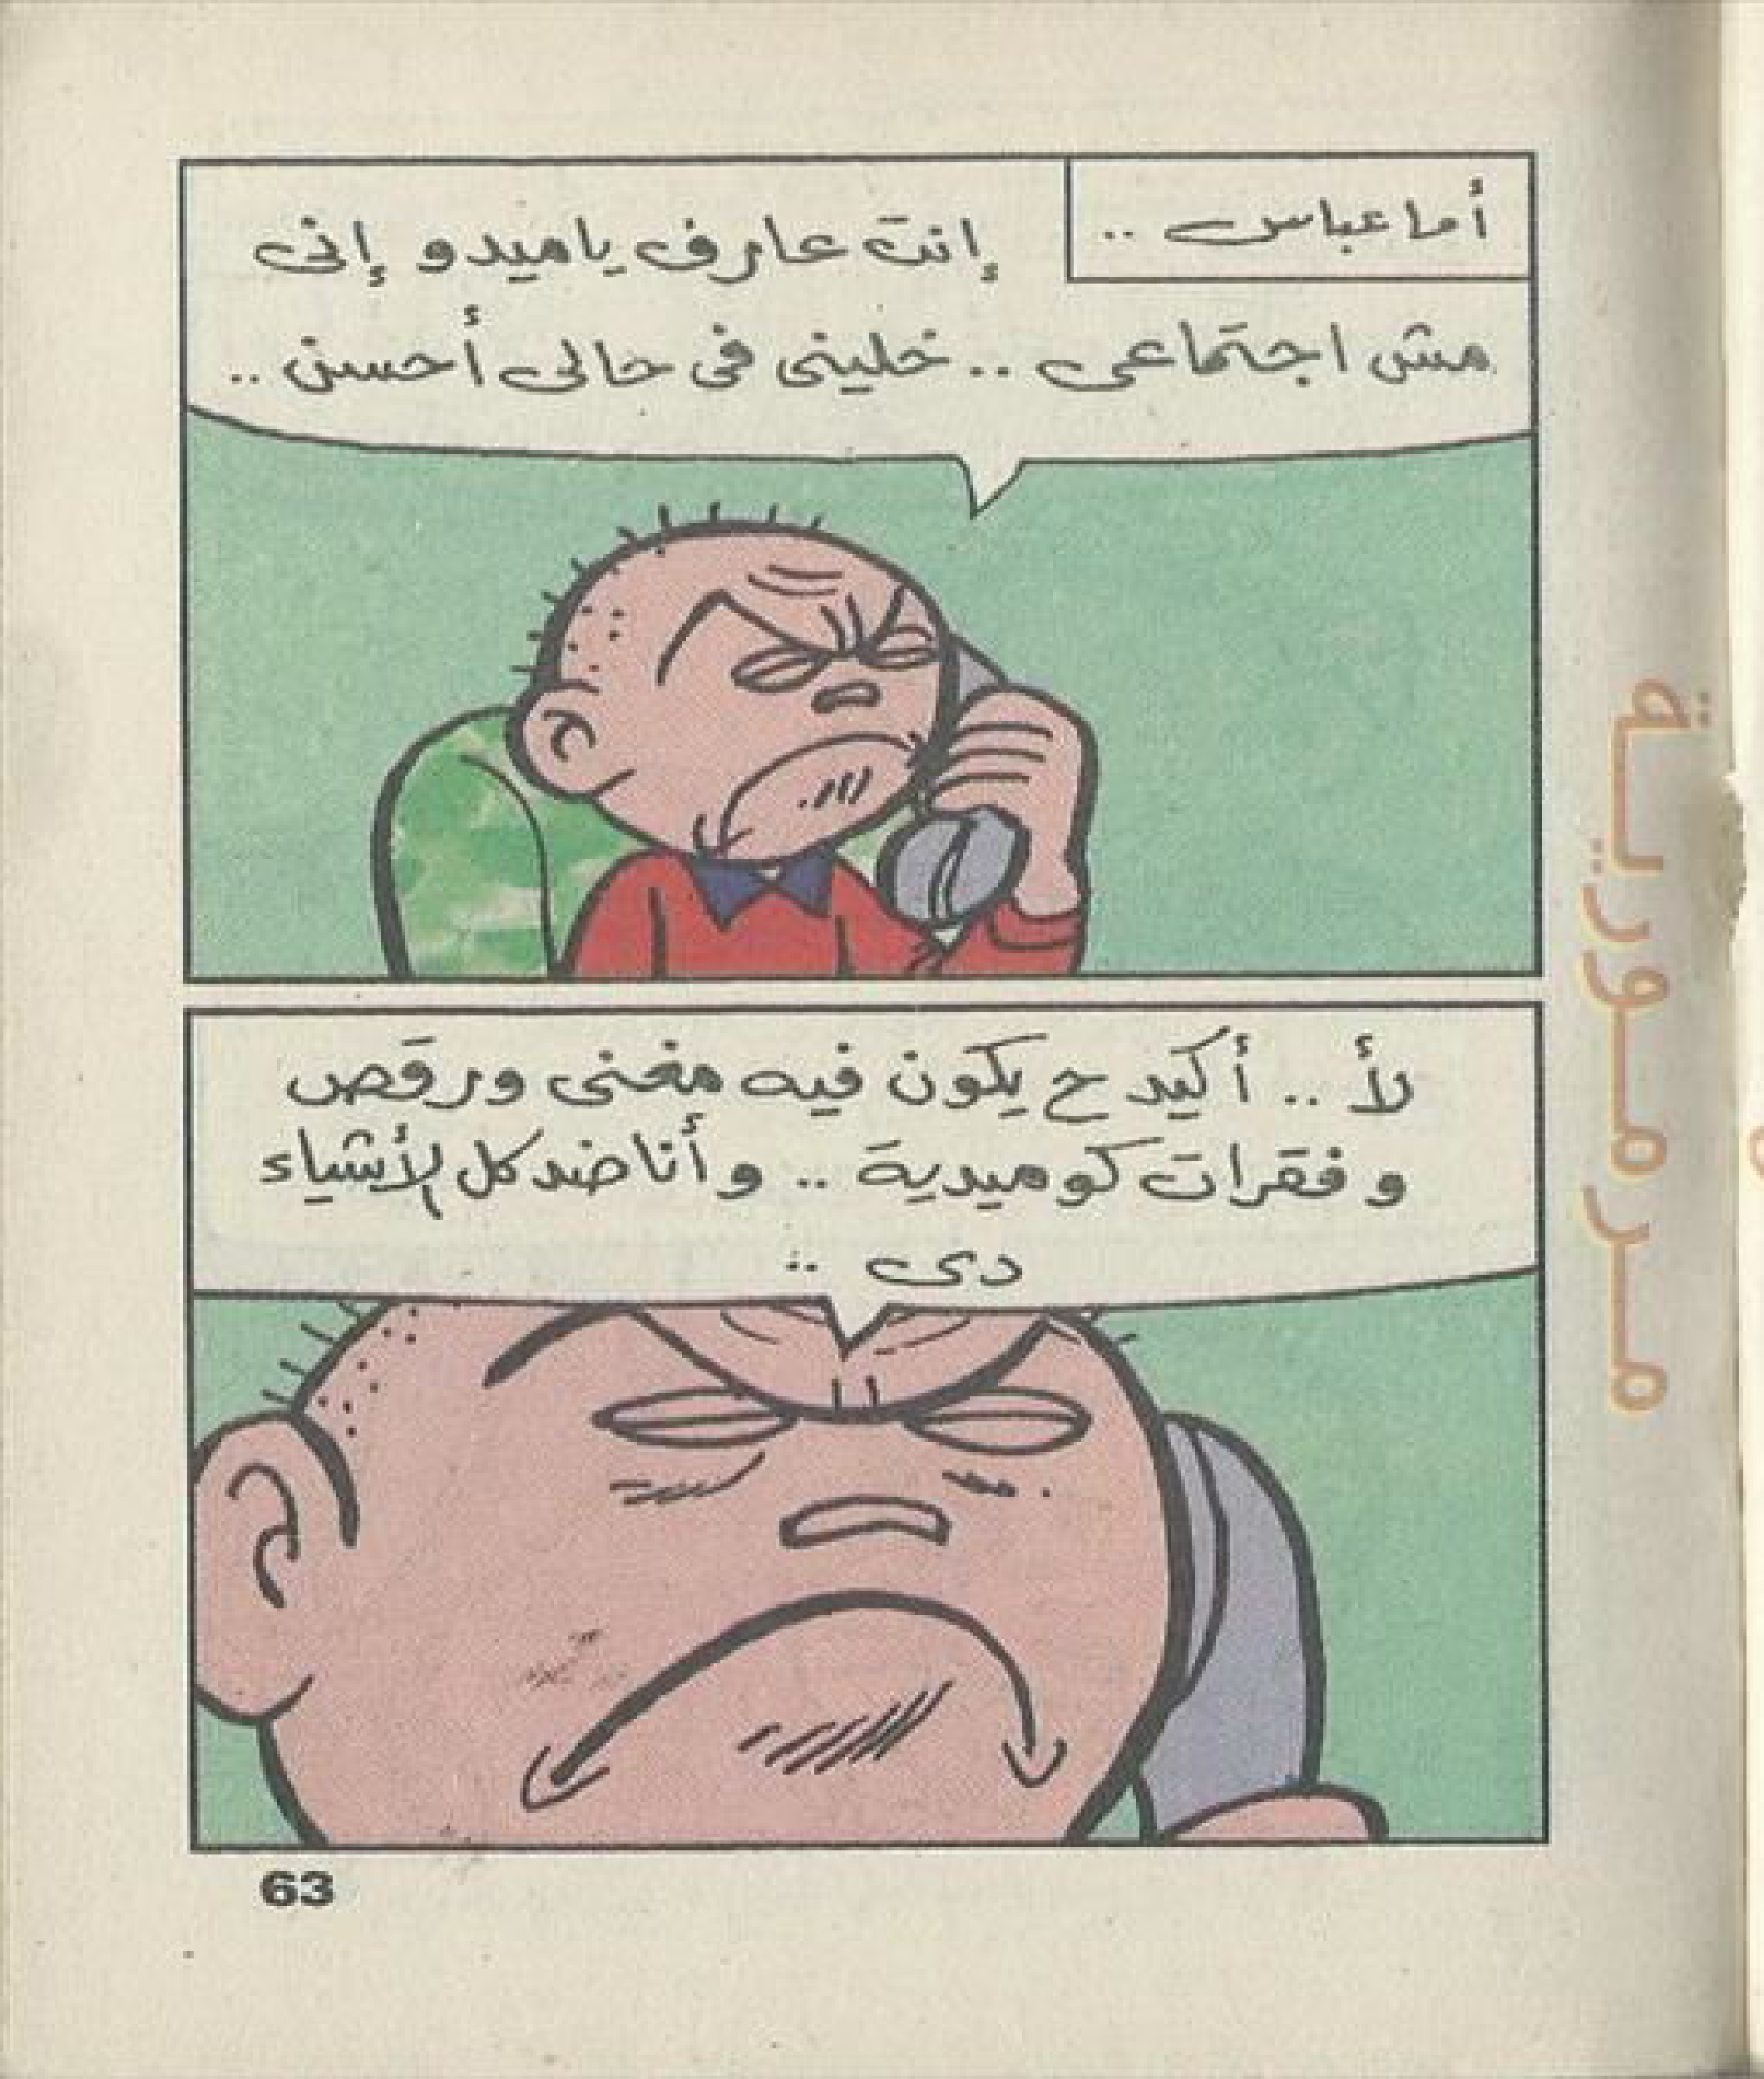 أما عباس ..
إنت عارف ياميدو إنى
مش اجتماعى .. خلينى فى حالى أحسن ..
لأ .. أكيد ح يكون فيه مغنى ورقص
وفقرات كوميدية .. وأنا ضد كل الأشياء
دى ..
63
مرمورية